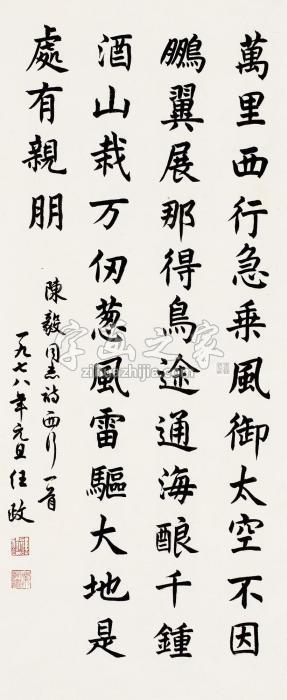 萬里西行急乘風御太空不因
鵬翼展那得鳥途通海酿千鍾
酒山栽万仞葱風雷驅大地是
處有親朋
陳毅同志詩西行一首
一九七八年元旦任政
字画之家
zihuazhijia.com